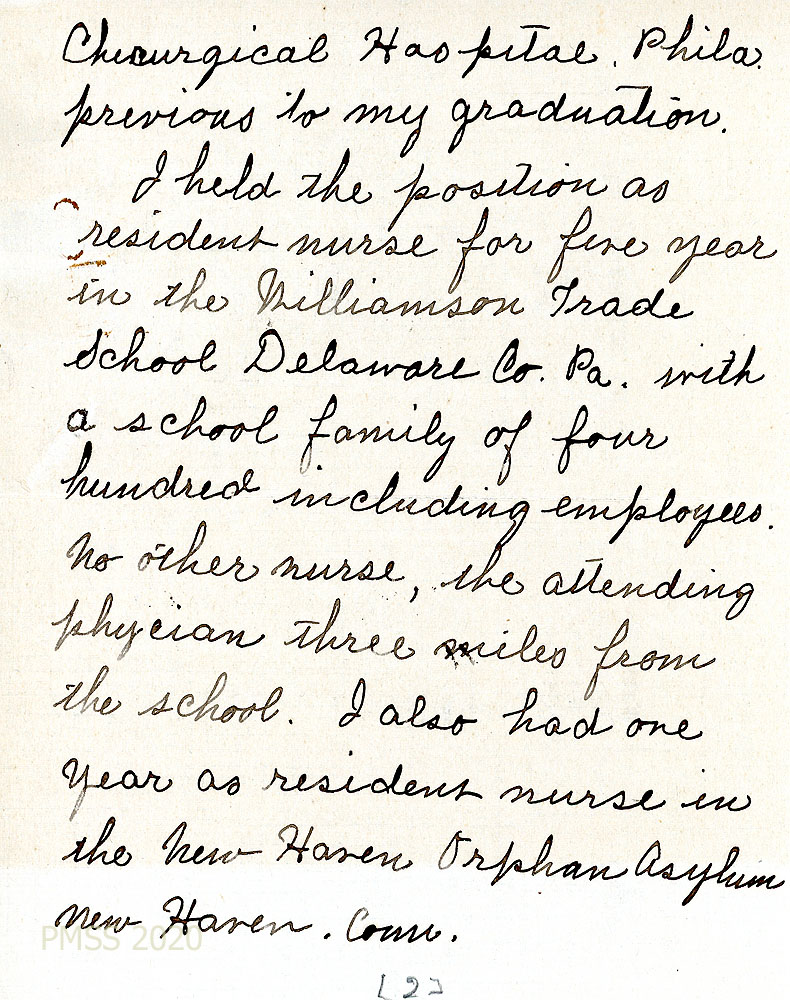 Chirurgical Hospital. Phila.
previous to my graduation.
I held the position as
resident nurse for five year
in the Williamson Trade
School Delaware Co. Pa. with
a school family of four
hundred including employees.
No other nurse, the attending
phycian three miles from
the school. I also had one
year as resident nurse in
the New Haven Orphan Asylum
New Haven. Conn.
PMSS 2020
[2]